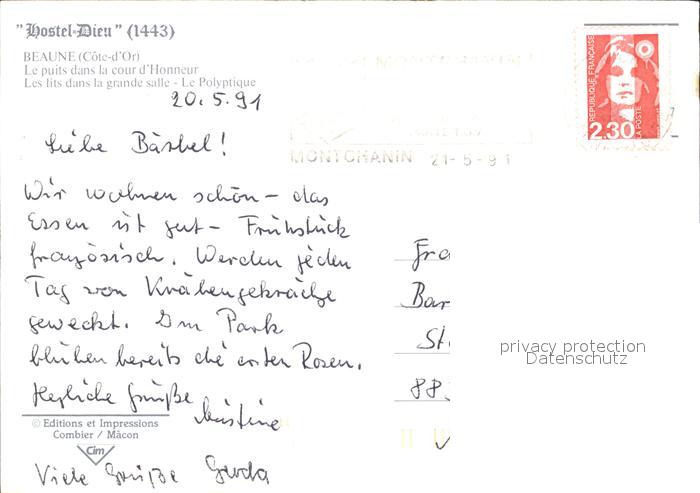 "Hostel-Dieu" (1443)
BEAUNE (Côte-d'Or)
Le puits dans la cour d'Honneur
Les lits dans la grande salle - Le Polyptique
20.5.91
Liebe Bärbel!
Wir wohnen schön – das
Essen ist gut – Frühstück
französisch. Werden jeden
Tag von Krähengekrächze
geweckt. Im Park
blühen bereits die ersten Rosen.
Herzliche Grüße
Christine
Viele Grüße Gerda
© Editions et Impressions
Combier / Mâcon
Cim
REPUBLIQUE FRANÇAISE
LA POSTE
2,30
MONTCHANIN 21-5-91
Fra
Bar
St
88
privacy protection
Datenschutz